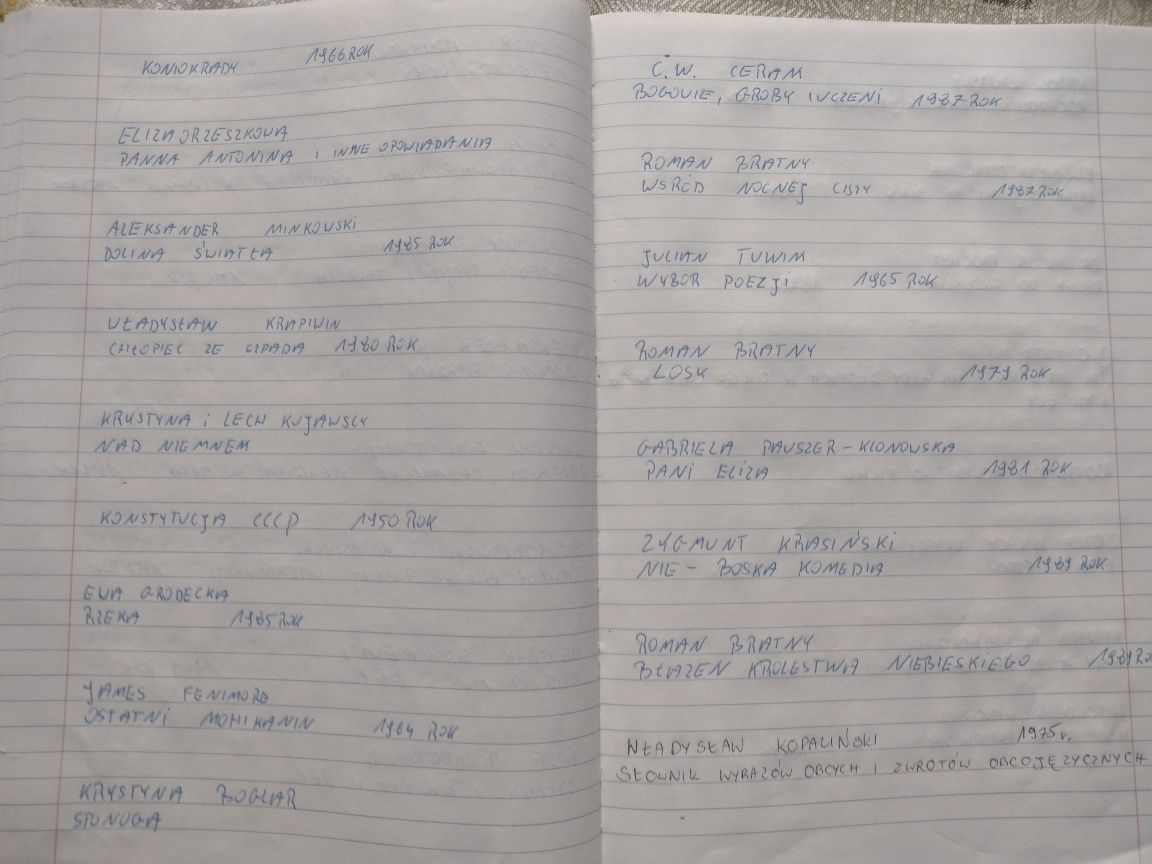 KONIOKRADY 1966 ROK
ELIZA ORZESZKOWA
PANNA ANTONINA I INNE OPOWIADANIA
ALEKSANDER MINKOWSKI
DOLINA ŚWIATŁA 1985 ROK
WŁADYSŁAW KRAPIWIN
CHŁOPIEC ZE CIPADA 1980 ROK
KRYSTYNA i LECH KUJAWSCY
NAD NIEMNEM
KONSTYTUCJA CCCP 1950 ROK
EWA GRODECKA
RZEKA 1985 ROK
JAMES FENIMORE
OSTATNI MOHIKANIN 1964 ROK
KRYSTYNA BOGLAR
STONOGA
C.W. CERAM
BOGOWIE, GROBY I UCZENI 1987 ROK
ROMAN BRATNY
WSRÓD NOCNEJ CISZY 1987 ROK
JULIAN TUWIM
WYBOR POEZJI 1965 ROK
ROMAN BRATNY
LOSY 1979 ROK
GABRIELA PAUSZER-KLONOWSKA
PANI ELIZA 1981 ROK
ZYGMUNT KRASIŃSKI
NIE-BOSKA KOMEDIA 1989 ROK
ROMAN BRATNY
BŁAZEN KROLESTWA NIEBIESKIEGO 1989 RO
WŁADYSŁAW KOPALIŃSKI 1975 r.
SŁOWNIK WYRAZÓW OBCYCH I ZWROTÓW OBCOJĘZYCZNYCH